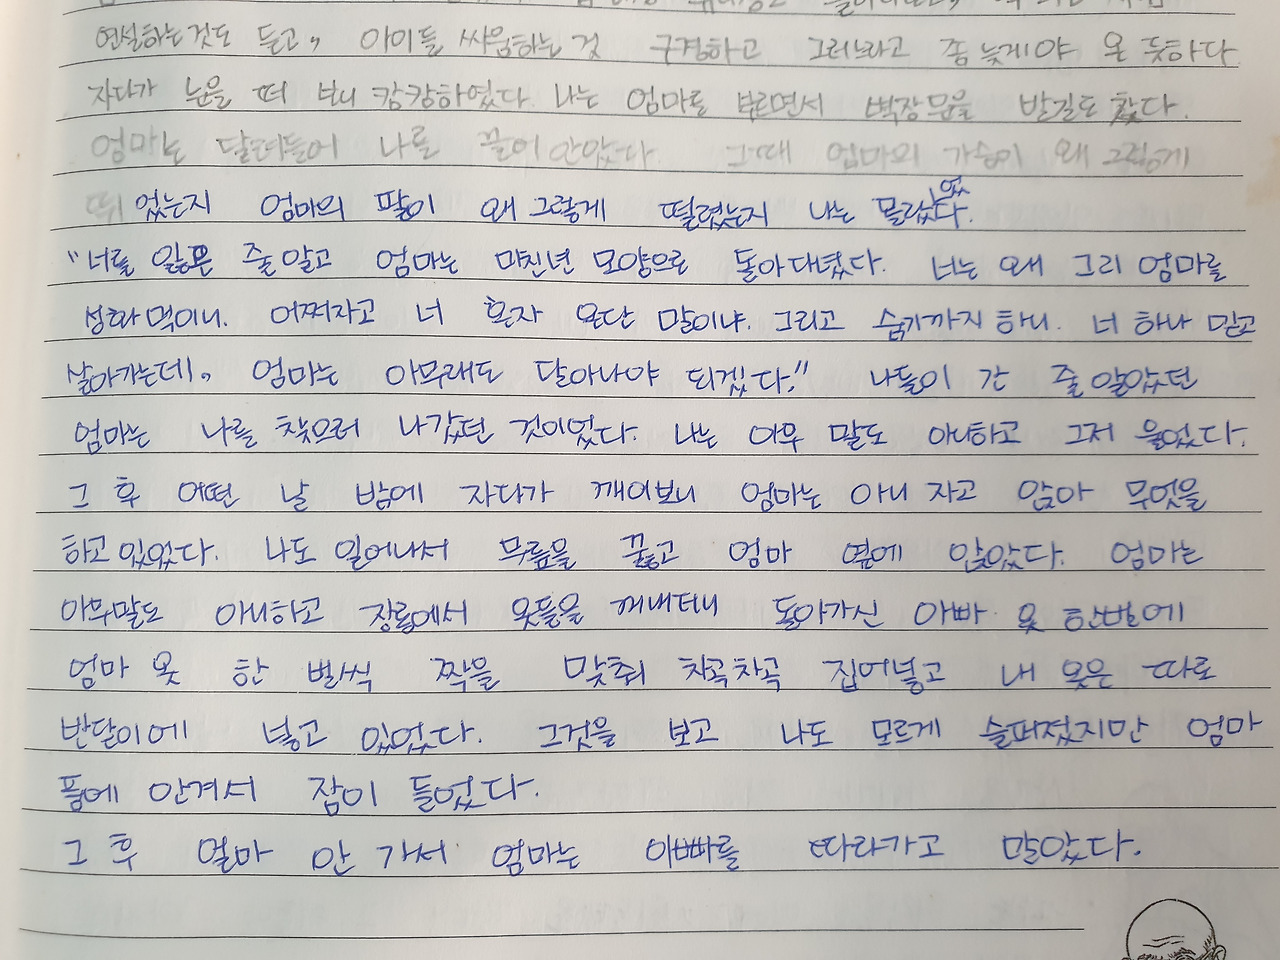 연설하는것도 듣고, 아이들 싸움하는 것 구경하고 그러느라고 좀 늦게야 온 듯하다
자다가 눈을 떠 보니 캄캄하였다. 나는 엄마를 부르면서 벽장문을 발길로 찼다.
엄마는 달려들어 나를 끌어 안았다. 그때 엄마의 가슴이 왜 그렇게
뛰었는지 엄마의 팔이 왜 그렇게 떨렸는지 나는 몰랐었다.
"너를 잃은 줄 알고 엄마는 미친년 모양으로 돌아다녔다. 너는 왜 그리 엄마를
성화먹이니. 어쩌자고 너 혼자 온단 말이냐. 그리고 숨기까지 하니. 너 하나 믿고
살아가는데, 엄마는 아무래도 달아나야 되겠다." 나들이 간 줄 알았던
엄마는 나를 찾으러 나갔던 것이었다. 나는 아무 말도 아니하고 그저 울었다.
그 후 어떤 날 밤에 자다가 깨어보니 엄마는 아니 자고 앉아 무엇을
하고 있었다. 나도 일어나서 무릎을 꿇고 엄마 옆에 앉았다. 엄마는
아무말도 아니하고 장롱에서 옷들을 꺼내더니 돌아가신 아빠 옷 한벌에
엄마 옷 한 벌씩 짝을 맞춰 차곡차곡 집어넣고 내 옷은 따로
반닫이에 넣고 있었다. 그것을 보고 나도 모르게 슬퍼졌지만 엄마
품에 안겨서 잠이 들었다.
그 후 얼마 안 가서 엄마는 아빠를 따라가고 말았다.